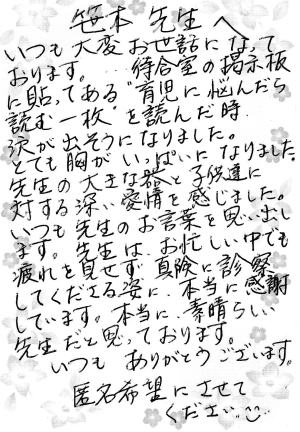 笹本 先生へ
いつも 大変 お世話に なって
おります。 待合室の 掲示板
に 貼って ある "育児に 悩んだら
読む 一枚" を 読んだ 時
涙が 出そうに なりました。
とても 胸が いっぱいに なりました。
先生の 大きな 器と 子供達に
対する 深い 愛情を 感じました。
いつも 先生の お言葉を 思い出し
ます。 先生は お忙しい 中でも
疲れを 見せず 真険に 診察
してくださる 姿に、本当に 感謝
しています。 本当に 素晴らしい
先生だと 思っております。
いつも ありがとうございます。
匿名希望に させて
ください。